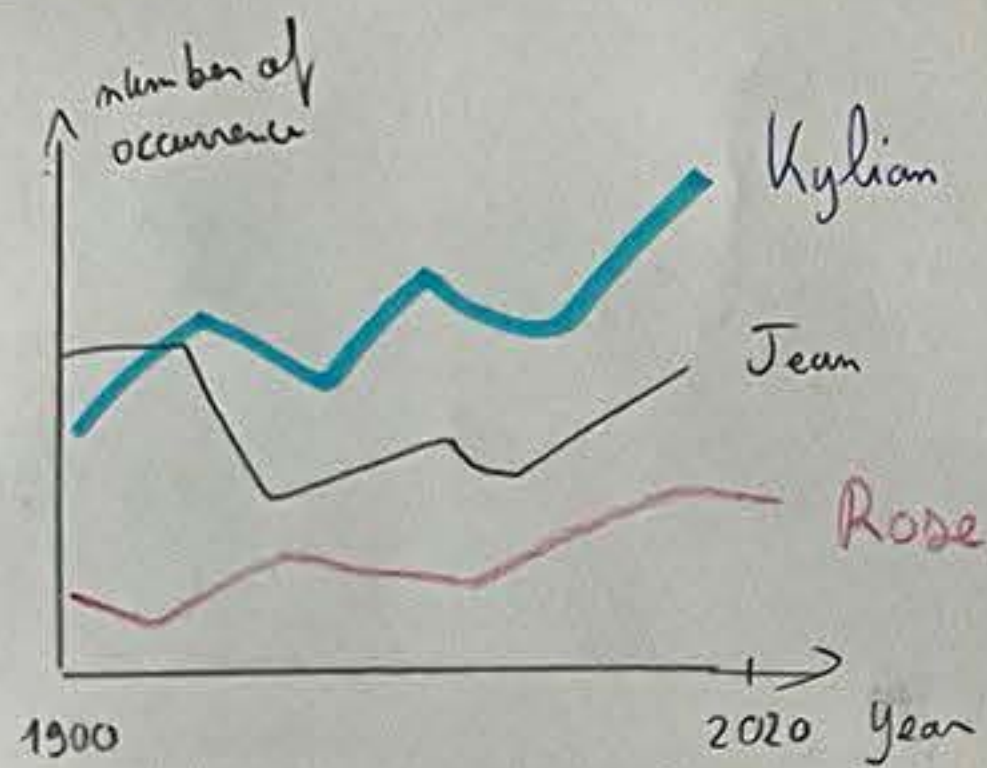 number of
occurrence
Kylian
Jean
Rose
1900
2020 Year